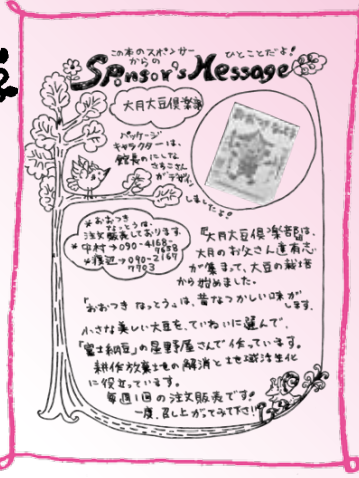 この本のスポンサー
からの
ひとことだよ!
Sponsor's Message
大月大豆倶楽部
パッケージ
キャラクターは、
館長のにしな
さちこさん
がデザイン
しましたよ!
おおつきなっとう
*おおつき
なっとうは、
注文販売しております。
*中村→090-4168-
9658
*渡辺→090-2167
7703
『大月大豆倶楽部』は、
大月のお父さん達有志
が集まって、大豆の栽培
から始めました。
「おおつき なっとう」は、昔なつかしい味が
します。
小さな美しい大豆を、ていねいに選んで、
「富士納豆」の星野屋さんで作っています。
耕作放棄地の解消と地域活性化
に役立っています。
毎週1回の注文販売です。
一度、召し上がってみて下さい!